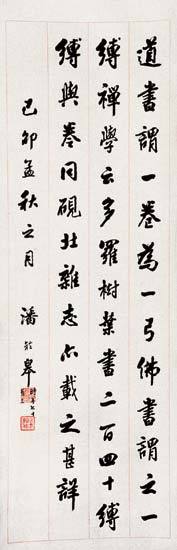 道書謂一卷為一弓佛書謂之一
縛禪學云多羅樹葉書二百四十縛
縛與卷同硯北雜志亦載之甚詳
己卯孟秋之月
潘齡皋
時年七十